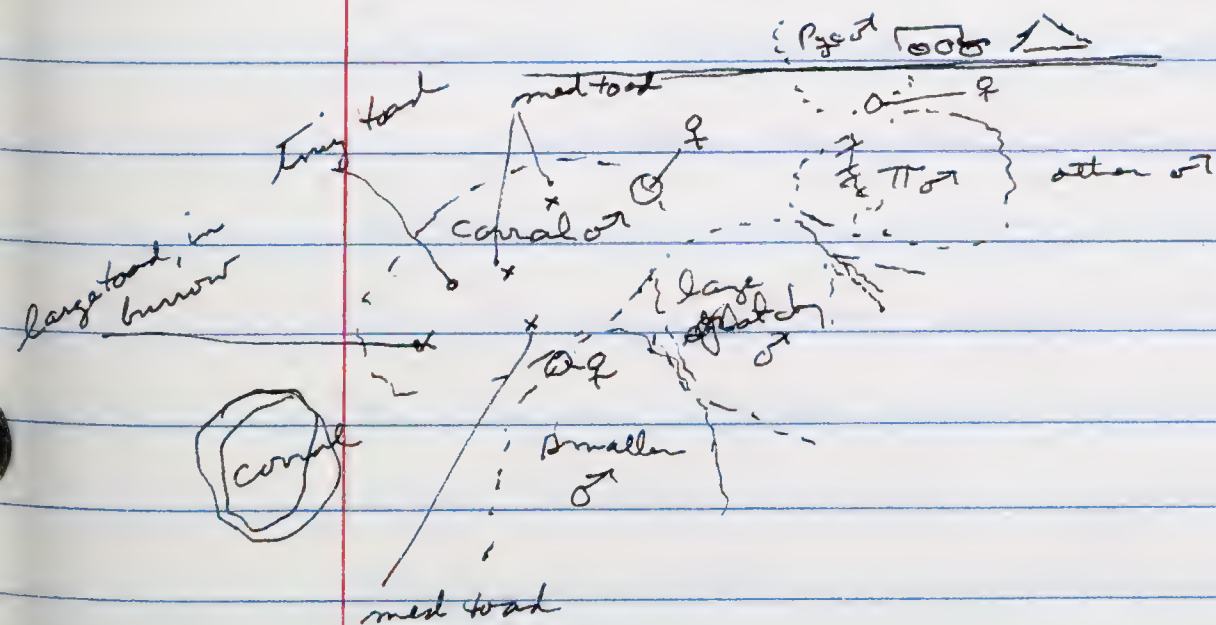 Pyg ♂
med toad
♀
Tiny toad
♀
π ♂
other ♂
corral ♂
large toad, in
burrow
large
♂
♀
corral
smaller
♂
med toad